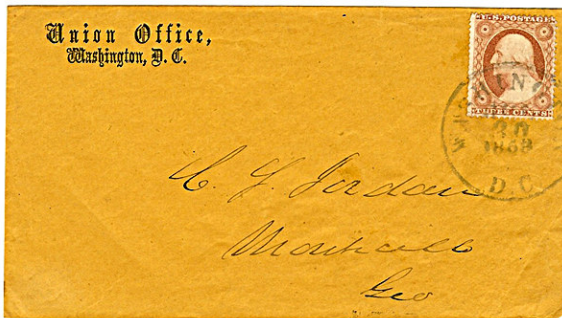 Union Office,
Washington, D. C.
U.S. POSTAGE
THREE CENTS
1858
D. C.
C. Y. Jordan
Monticello
Geo